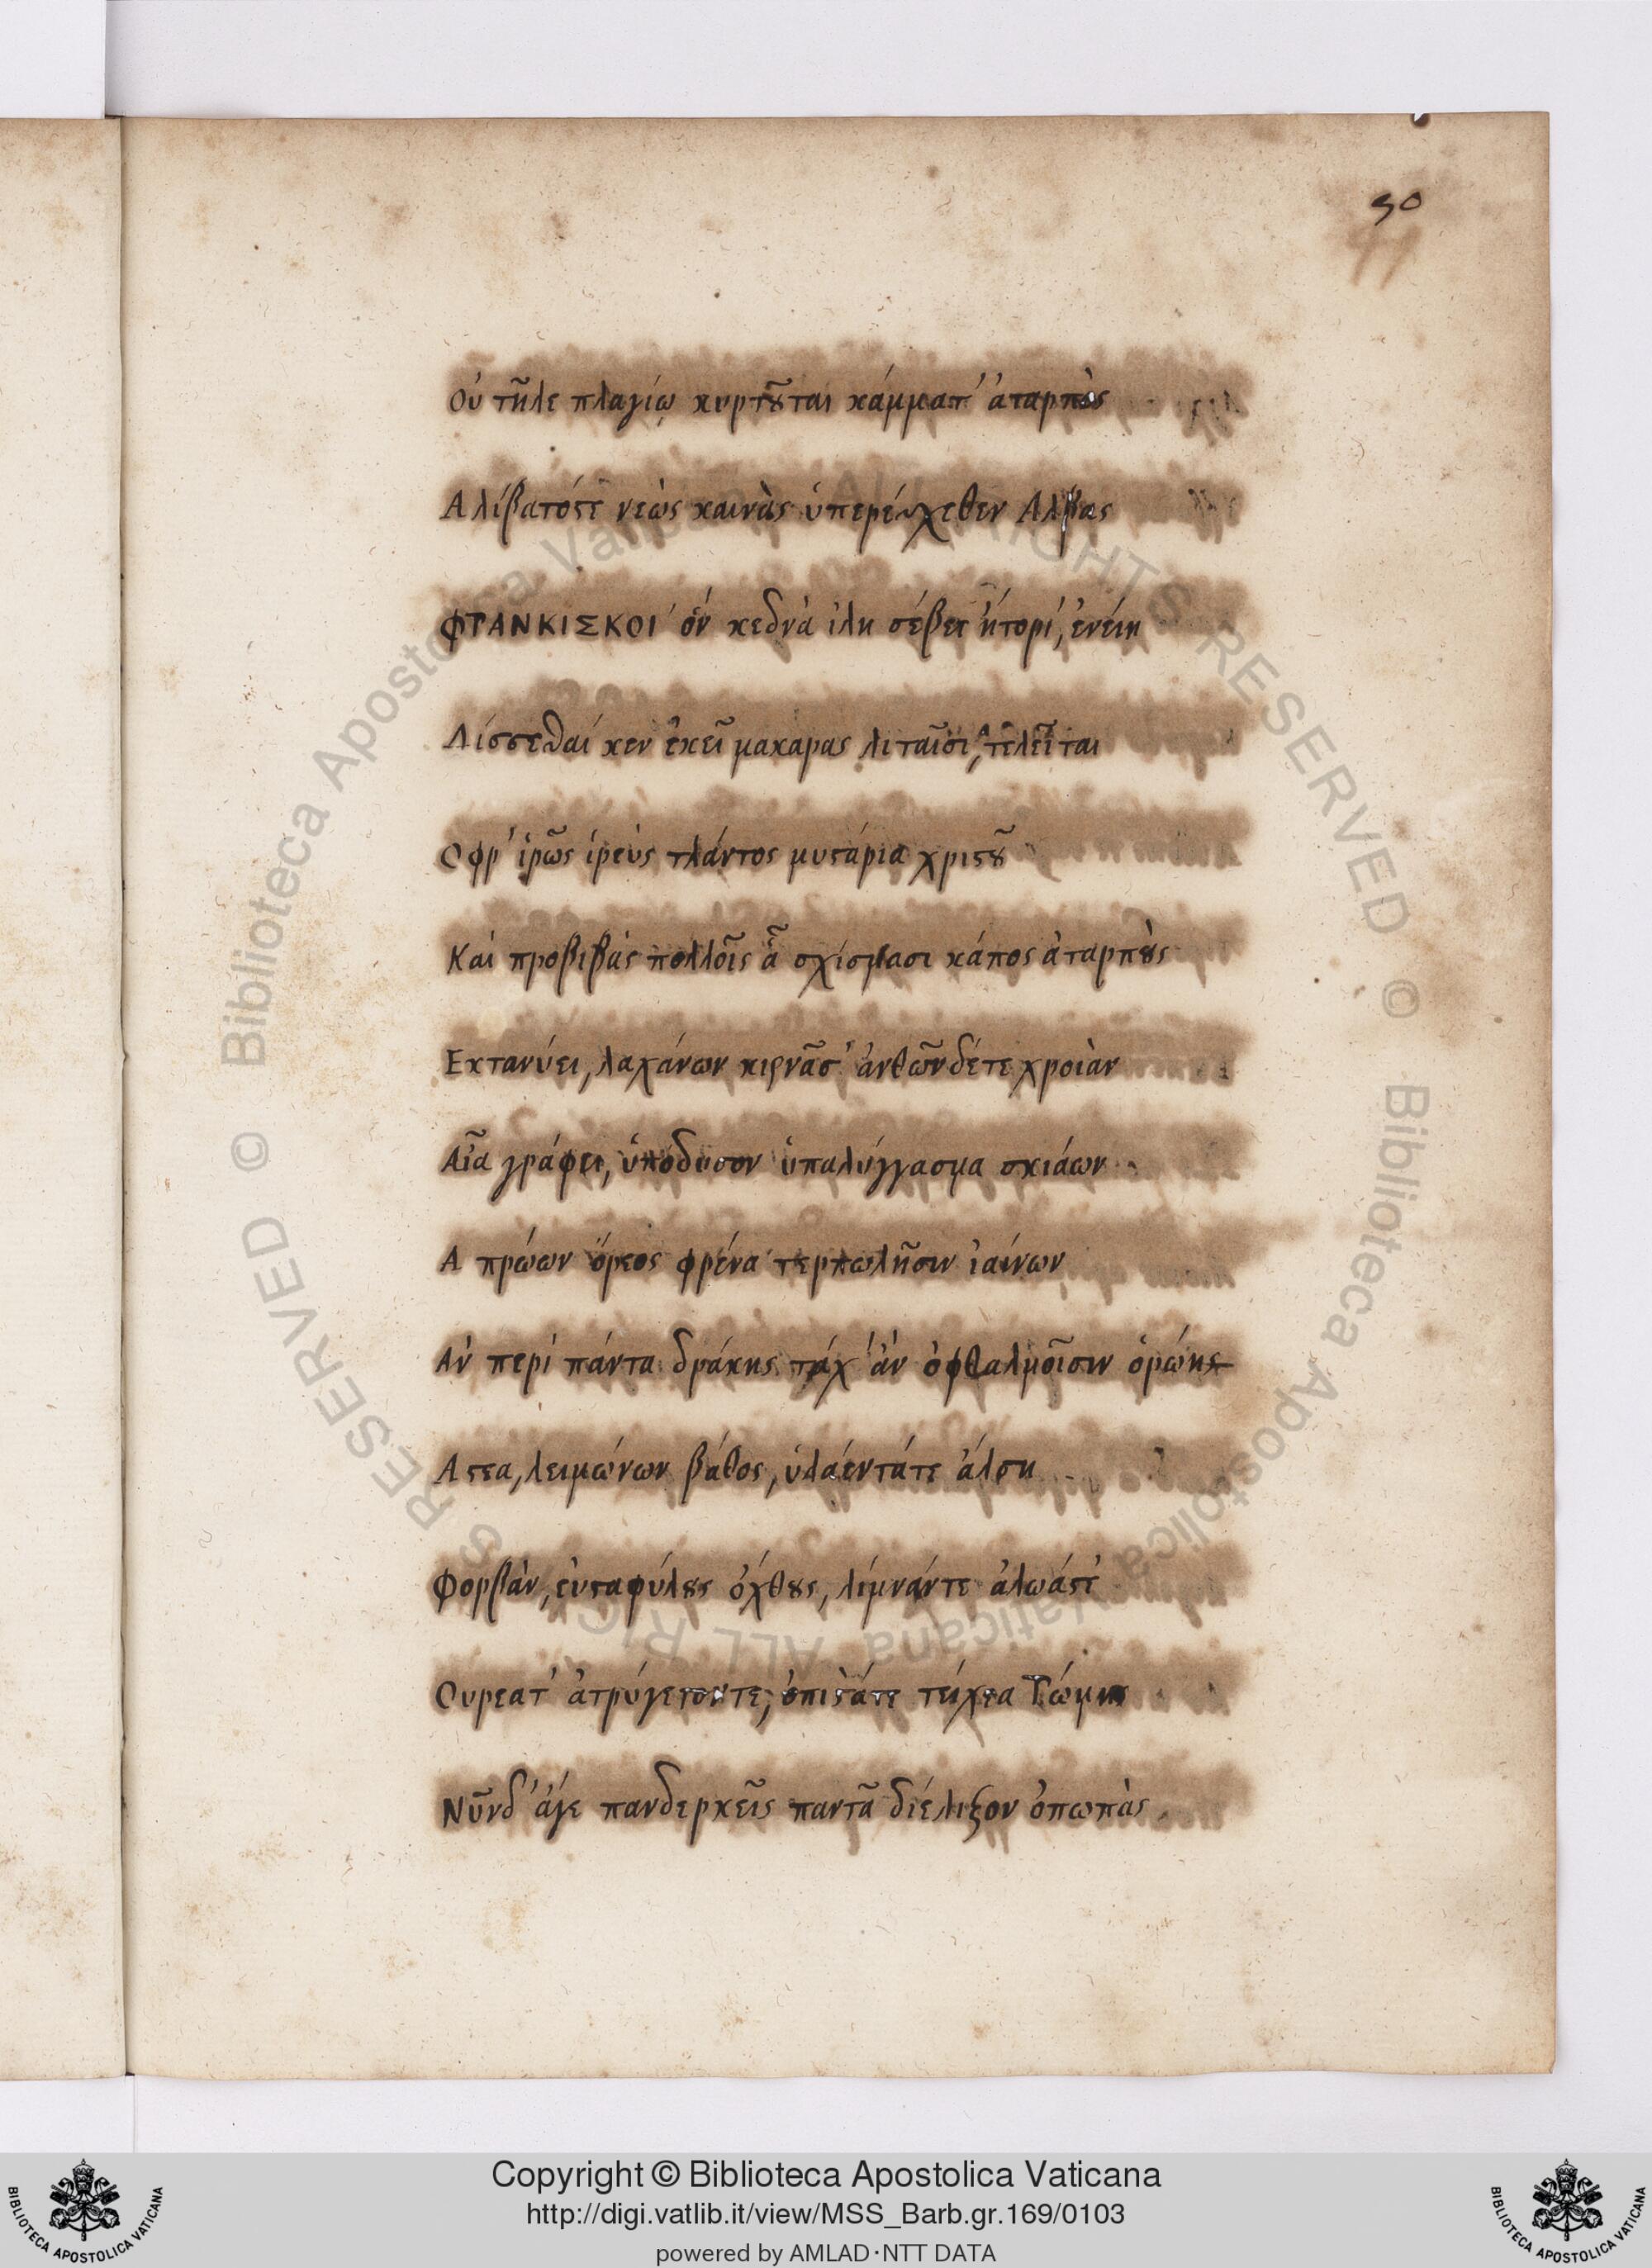 50
Οὐ τῆλε πλαγίῳ κυρτȣ͂ται κάμματ' ἀταρπὸς
Αλίβατόστε νεὼς καινὰς ὑπερέσχεθεν Αλβας
ΦΡΑΝΚΙΣΚΟΙ ὅν κεδνὰ ἰλη σέβετ' ἤτορί, ἐνείη
Λίσσεσθαί κεν ἐκεῖ μακαρας λιταῖσι, τελεῖται
Οφρ' ἱρῶς ἱρεὺς τλάντος μυστάρια χριστȣ͂
Και προβιβὰς πολλοῖς ἇ σχίσμασι κάπος ἀταρπȣ̀ς
Εκτανύει, λαχάνων κιρνᾶσ' ἀνθῶνδέτε χροιὰν
Αἶα γράφει, ὑπόδυσον ὑπαλύγγασμα σκιάων
Α πρώων ὄρεος φρένα τερπωλῆσιν ἰαίνων
Αν περὶ πάντα δράκης τάχ' ἀν ὀφθαλμοῖσιν ὁρώης
Αστεα, λειμώνων βάθος, ὑλάεντάτε ἄλση
Φορβὰν, εὐσταφύλȣς ὄχθȣς, λίμνάντε ἀλωάστέ
Ουρεατ' ἀτρύγετοντε, ὀπιστάτε τείχεα Ρώμης
Νῦνδ' ἄγε πανδερκεῖς παντᾶ διέλιξον ὀπωπὰς
Copyright © Biblioteca Apostolica Vaticana
http://digi.vatlib.it/view/MSS_Barb.gr.169/0103
powered by AMLAD·NTT DATA
BIBLIOTECA APOSTOLICA VATICANA
BIBLIOTECA APOSTOLICA VATICANA